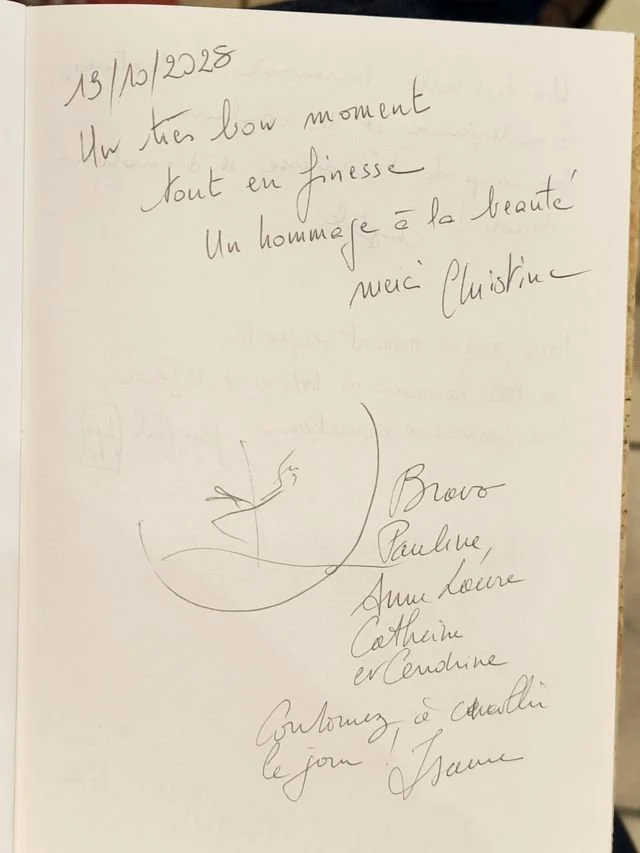 13/10/2028
Un très bon moment
tout en finesse
Un hommage à la beauté
merci Christine
Bravo
Pauline,
Anne Laure
Catherine
et Cendrine
Continuez, à
le jour !